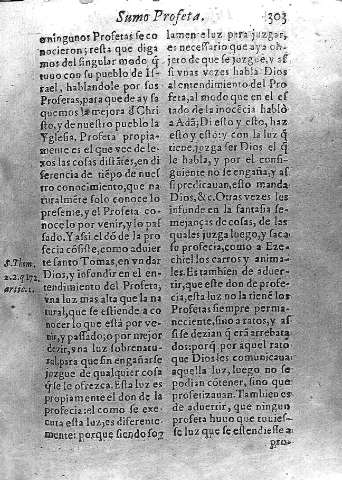 Sumo Profeta.
303
en ningunos Profetas se co
nocieron; resta que diga
mos del singular modo q̃
tuuo con su pueblo de Is-
rael, hablandole por sus
Profetas, para que de ay sa
quemos la mejora d̃ Chris
to, y de nuestro pueblo la
Yglesia. Profeta propia-
mente es el que vee de le-
xos las cosas distãtes, en di
ferencia de tiẽpo de nues
tro conocimiento, que na
turalmẽte solo conoce lo
presente, y el Profeta co-
noce lo por venir, y lo pas
sado. Y assi el dõ de la pro
fecia cõsiste, como aduier
te santo Tomas, en vn dar
Dios, y infundir en el en-
tendimiento del Profeta,
vna luz mas alta que la na
tural, que se estiende a co
nocer lo que està por ve-
nir, y passado; o por mejor
dezir, vna luz sobrenatu-
ral, para que sin engañarse
juzgue de qualquier cosa
q̃ se le ofrezca. Esta luz es
propiamente el don de la
profecia: el como se exe-
cuta esta luz, es diferente-
mente: porque siendo so-
S. Thom.
2.2.q.172.
artic.1.
lamente luz para juzgar,
es necessario que aya ob-
jero de que se juzgue, y as
si vnas vezes habla Dios
al entendimiento del Pro
feta, al modo que en el es
tado de la inocẽcia hablò
a Adã; Di esto, y esto, haz
esto y estó: y con la luz q̃
tiene, juzga ser Dios el q̃
le habla, y por el consi-
guiente no se engaña, y as
si predicauan, esto manda
Dios, &c. Otras vezes les
infunde en la fantasia se-
mejanças de cosas, de las
quales juzga luego, y saca
su profecia, como a Eze-
chiel los carros y anima-
les. Es tambien de aduer-
tir, que este don de profe-
cia, esta luz no la tiene los
Profetas siempre perma-
neciente, sino a ratos, y as
si se dezian q̃ erã arrebata
dos: porq̃ por aquel rato
que Dios les comunicaua
aquella luz, luego no se
podian cõtener, sino que
profetizauan. Tambien es
de aduertir, que ningun
profeta huuo que tuuies-
se luz que se estendiesse a
pro-